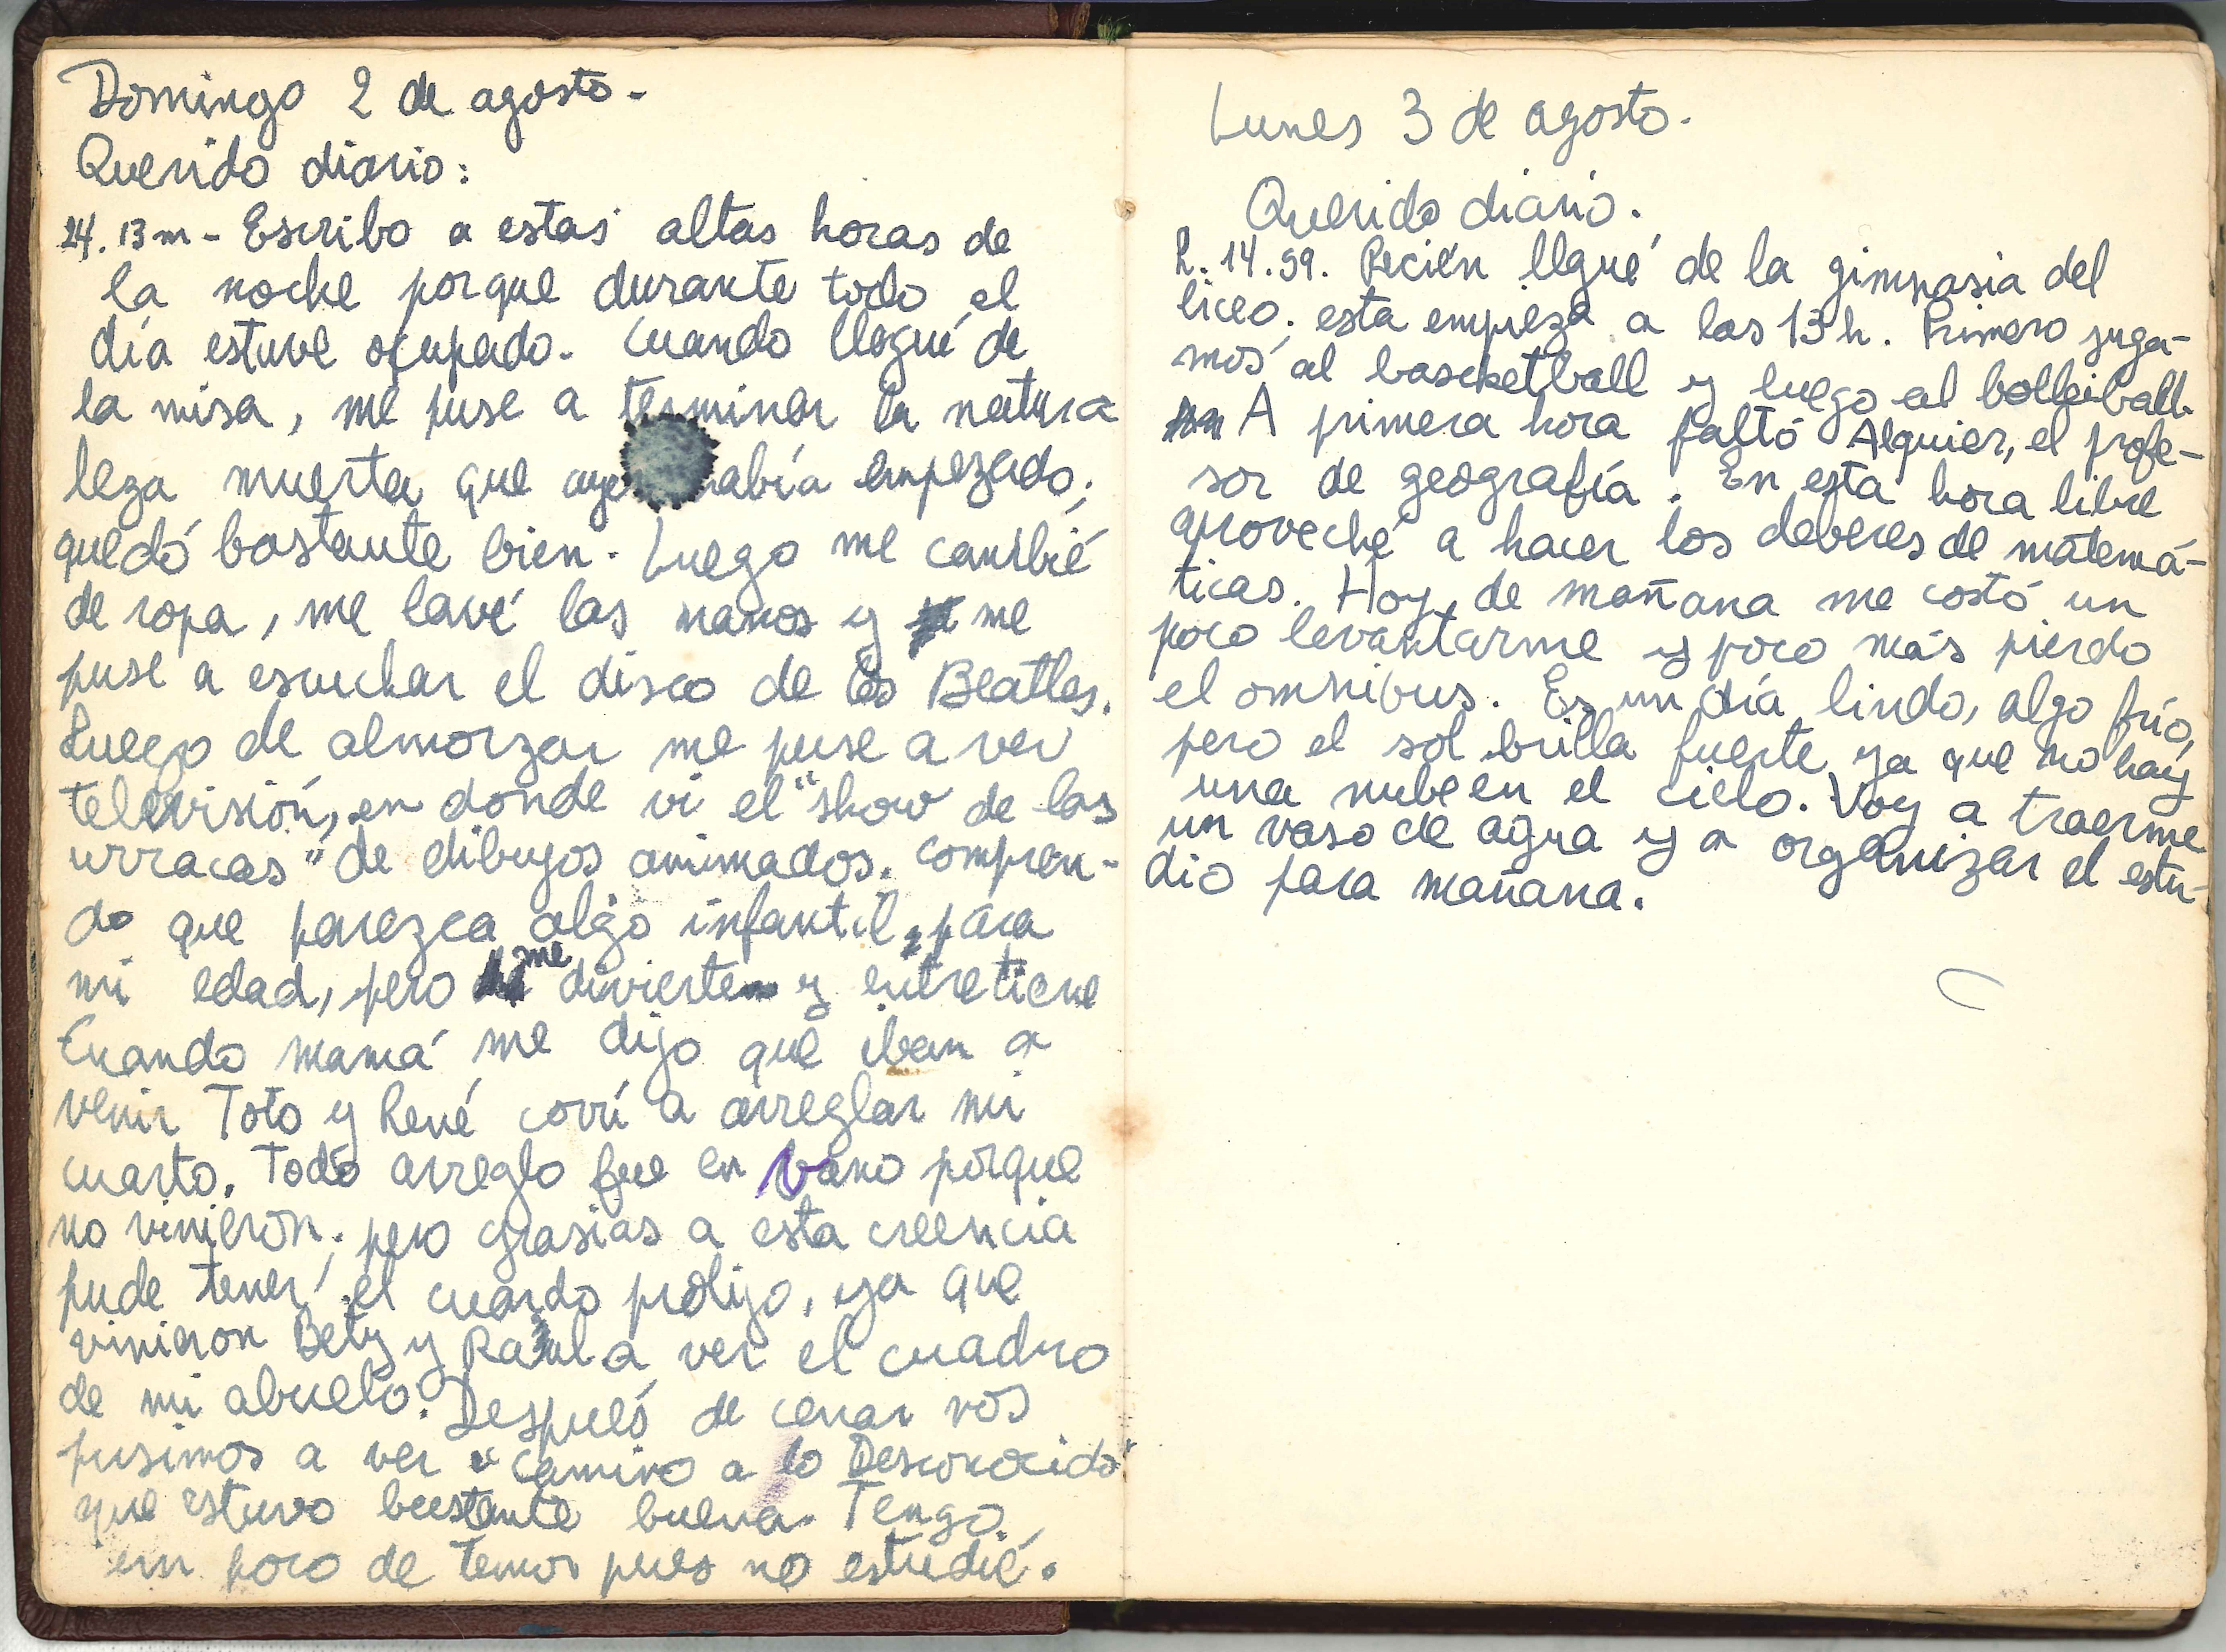 Domingo 2 de agosto-
Querido diario:
24. 13 m - Escribo a estas altas horas de
la noche porque durante todo el
día estuve ocupado. Cuando llegué de
la misa, me puse a terminar la natura
leza muerta que aye había empezado;
quedó bastante bien. Luego me cambié
de ropa, me lavé las manos y me
puse a escuchar el disco de los Beatles.
Luego de almorzar me puse a ver
televisión, en donde vi el "show de las
urracas" de dibujos animados. Compren-
do que parezca algo infantil, para
mi edad, pero me divierte y entretiene
Cuando mamá me dijo que iban a
venir Toto y René corrí a arreglar mi
cuarto. Todo arreglo fue en vano porque
no vinieron; pero grasias a esta creencia
pude tener el cuardo prolijo, ya que
vinieron Bety y Raúl a ver el cuadro
de mi abuelo. Después de cenar nos
pusimos a ver "Camino a lo Desconocido"
que estuvo bastante buena. Tengo
un poco de temor pues no estudié.
Lunes 3 de agosto.
Querido diario.
h. 14.59. Recién llegué de la gimnasia del
liceo; esta empieza a las 13 h. Primero juga-
mos al bascketball y luego al bolleiball.
A primera hora faltó Alquier, el profe-
sor de geografía. En esta hora libre
aproveché a hacer los deberes de matemá-
ticas. Hoy de mañana me costó un
poco levantarme y poco más pierdo
el omnibus. Es un día lindo, algo frío,
pero el sol brilla fuerte ya que no hay
una nube en el cielo. Voy a traerme
un vaso de agua y a organizar el estu-
dio para mañana.